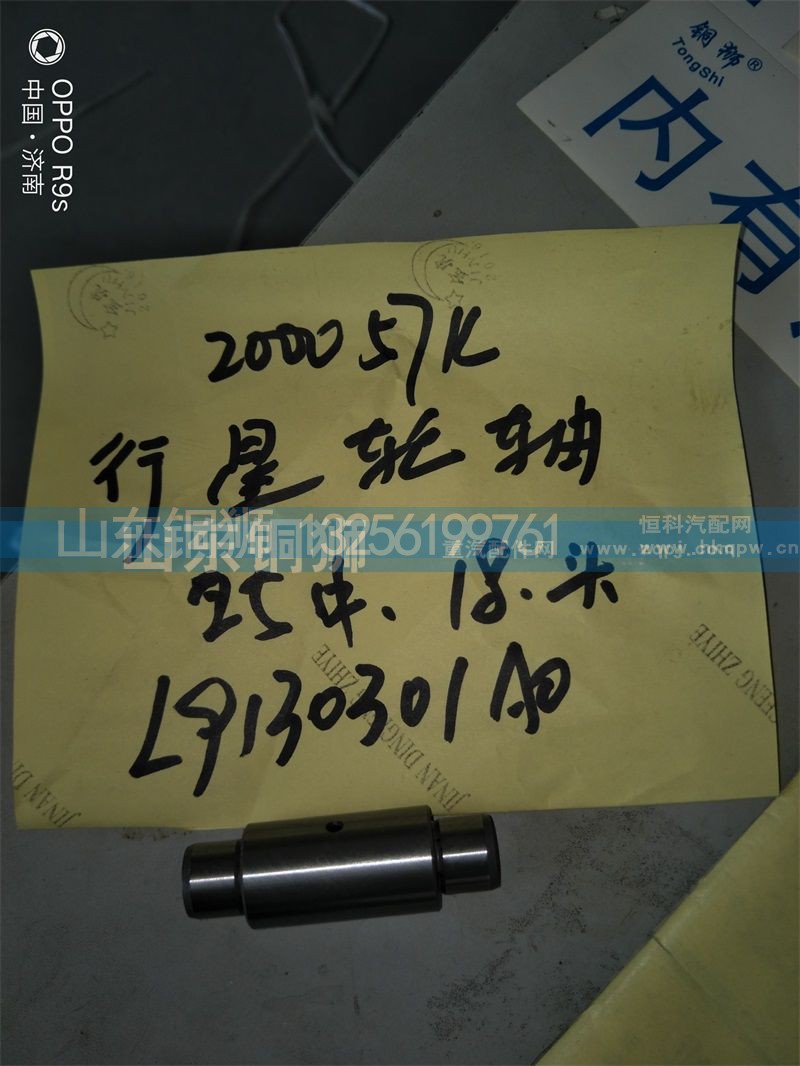 OPPO R9s
中国·济南
铜狮®
TongShi
内有
200057K
行星轮轴
山东铜狮 13256199761
山东铜狮
重汽配件网
恒科汽配网
25中、18.头
L9130301A0
CHENG ZHIYE
JINAN DING